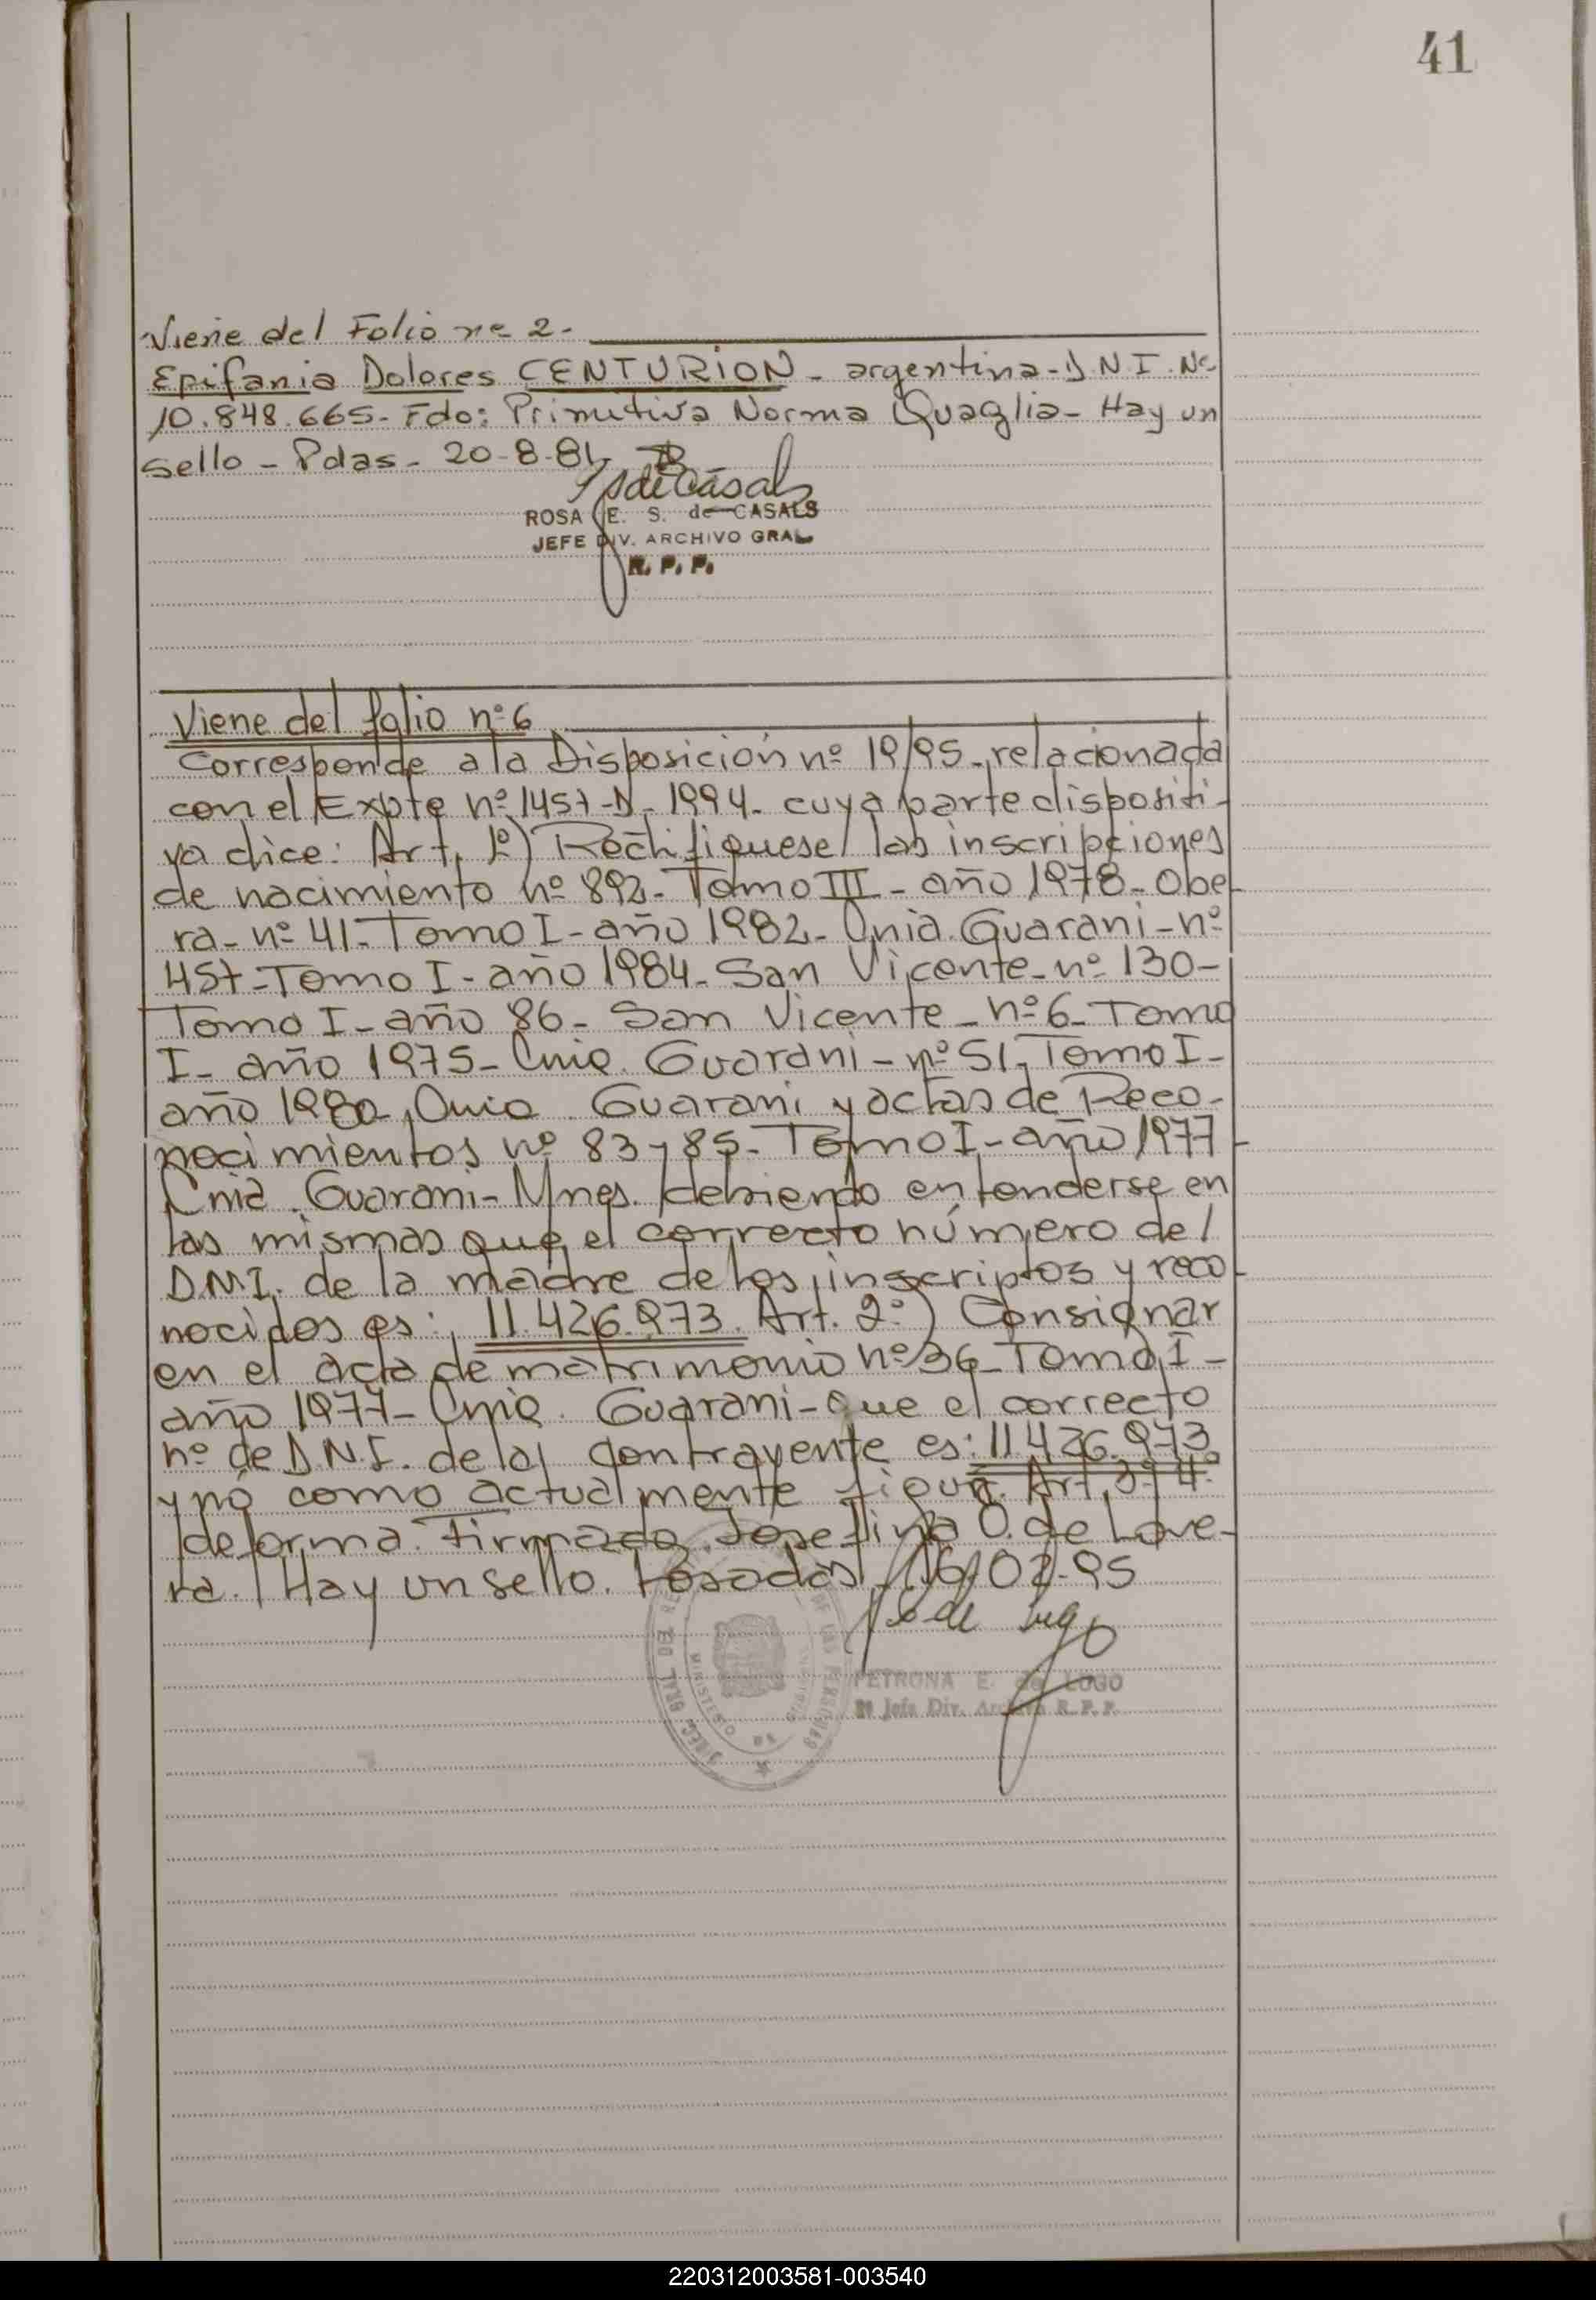 41
Viene del Folio nº 2.
Epifania Dolores CENTURION - argentina - D N I. Nº
10.848.665 - Fdo: Primitiva Norma Quaglia - Hay un
sello - Pdas - 20-8-81
ROSA E. S. de CASALS
JEFE DIV. ARCHIVO GRAL
R. P. P.
Viene del folio nº 6
Corresponde a la Disposición nº 19/95 - relacionada
con el Expte nº 1457-D-1994 - cuya parte dispositi-
va dice: Art. 1º) Rectifiquese las inscripciones
de nacimiento nº 892 - Tomo III - año 1978 - Obe-
ra - nº 41 - Tomo I - año 1982 - Cnia. Guarani - nº
457 - Tomo I - año 1984 - San Vicente - nº 130 -
Tomo I - año 86 - San Vicente - nº 6 - Tomo
I - año 1975 - Cnia. Guarani - nº 51 - Tomo I -
año 1980, Cnia. Guarani y actas de Reco-
nocimientos nº 83 y 85 - Tomo I - año 1977
Cnia. Guarani - Mnes. debiendo entenderse en
las mismas que el correcto número del
D.N.I. de la madre de los inscriptos y reco-
nocidos es: 11.426.973. Art. 2º) Consignar
en el acta de matrimonio nº 36 - Tomo I -
año 1977 - Cnia. Guarani - que el correcto
nº de D.N.I. de la contrayente es: 11.426.973
y no como actualmente figura. Art. 3º y 4º
de forma. Firmado. Josefina O. de Love-
ra. Hay un sello. Posadas, 16/02-95
PETRONA E. de LUGO
Jefe Div. Archivo R. P. P.
MINISTERIO DE
220312003581-003540